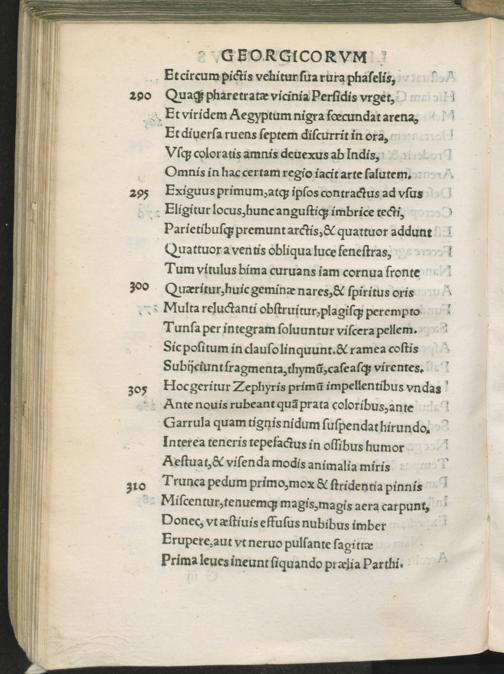 GEORGICORVM
Et circum pictis vehitur sua rura phaselis,
290 Quaq; pharetratæ vicinia Persidis vrget,
Et viridem Aegyptum nigra fœcundat arena,
Et diuersa ruens septem discurrit in ora,
Vsq; coloratis amnis deuexus ab Indis,
Omnis in hac certam regio iacit arte salutem.
295 Exiguus primum, atq; ipsos contractus ad vsus
Eligitur locus, hunc angustiq; imbrice tecti,
Parietibusq; premunt arctis, & quattuor addunt
Quattuor a ventis obliqua luce fenestras,
Tum vitulus bima curuans iam cornua fronte
300 Quæritur, huic geminæ nares, & spiritus oris
Multa reluctanti obstruitur, plagisq; perempto
Tunsa per integram soluuntur viscera pellem.
Sic positum in clauso linquunt. & ramea costis
Subijciunt fragmenta, thymū, caseasq; virentes.
305 Hoc geritur Zephyris primū impellentibus vndas
Ante nouis rubeant quā prata coloribus, ante
Garrula quam tignis nidum suspendat hirundo.
Interea teneris tepefactus in ossibus humor
Aestuat, & visenda modis animalia miris
310 Trunca pedum primo, mox & stridentia pinnis
Miscentur, tenuemq; magis, magis aera carpunt,
Donec, vt æstiuis effusus nubibus imber
Erupere, aut vt neruo pulsante sagittæ
Prima leues ineunt siquando prælia Parthi.